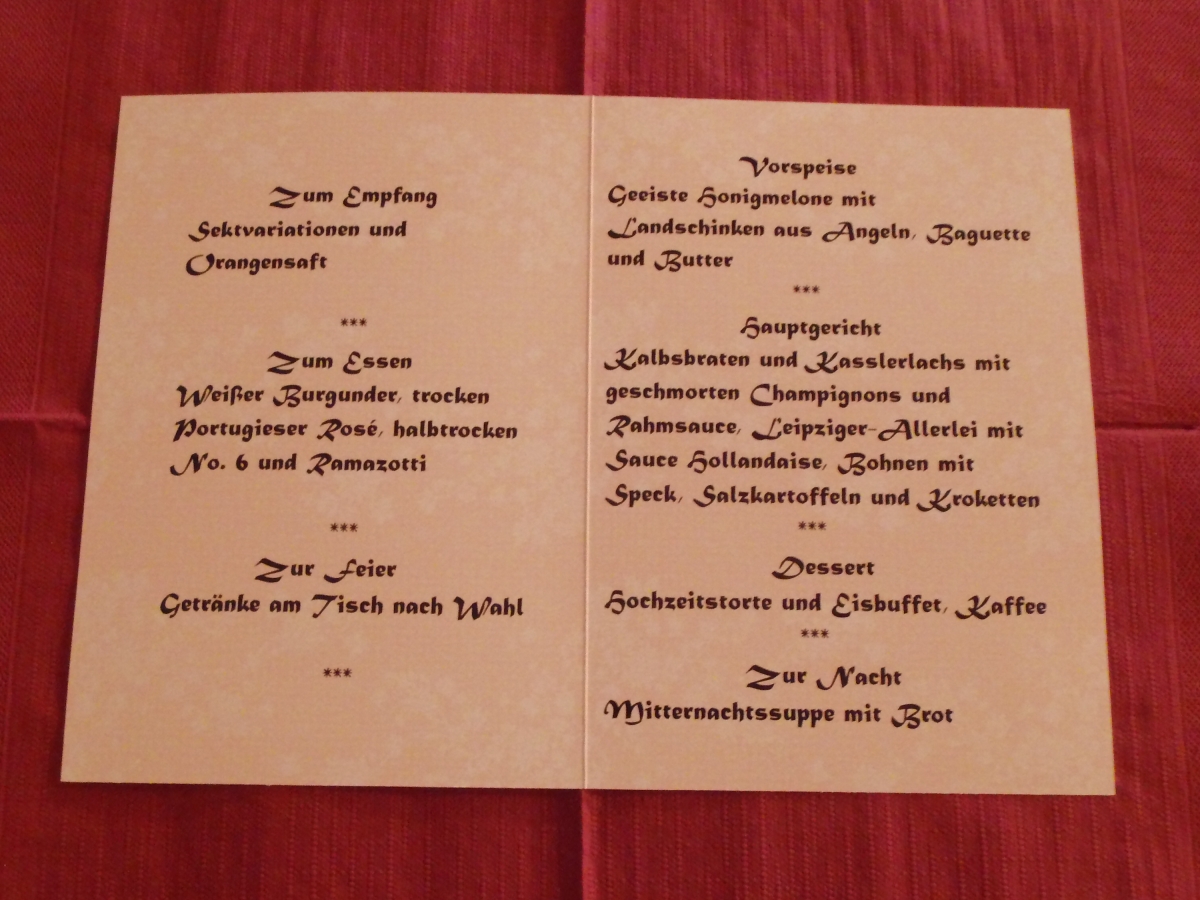 Zum Empfang
Sektvariationen und
Orangensaft
***
Zum Essen
Weißer Burgunder, trocken
Portugieser Rosé, halbtrocken
No. 6 und Ramazotti
***
Zur Feier
Getränke am Tisch nach Wahl
***
Vorspeise
Geeiste Honigmelone mit
Landschinken aus Angeln, Baguette
und Butter
***
Hauptgericht
Kalbsbraten und Kasslerlachs mit
geschmorten Champignons und
Rahmsauce, Leipziger-Allerlei mit
Sauce Hollandaise, Bohnen mit
Speck, Salzkartoffeln und Kroketten
***
Dessert
Hochzeitstorte und Eisbuffet, Kaffee
***
Zur Nacht
Mitternachtssuppe mit Brot